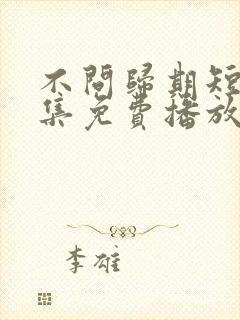 不問歸期短
集免費播放
李雄